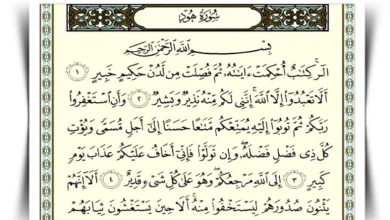 سُورَةُ هُودٍ
بِسْمِ ٱللَّهِ ٱلرَّحْمَٰنِ ٱلرَّحِيمِ
الٓر ۚ كِتَٰبٌ أُحْكِمَتْ ءَايَٰتُهُۥ ثُمَّ فُصِّلَتْ مِن لَّدُنْ حَكِيمٍ خَبِيرٍ ١
أَلَّا تَعْبُدُوٓا۟ إِلَّا ٱللَّهَ ۚ إِنَّنِى لَكُم مِّنْهُ نَذِيرٌ وَبَشِيرٌ ٢ وَأَنِ ٱسْتَغْفِرُوا۟
رَبَّكُمْ ثُمَّ تُوبُوٓا۟ إِلَيْهِ يُمَتِّعْكُم مَّتَٰعًا حَسَنًا إِلَىٰٓ أَجَلٍ مُّسَمًّى وَيُؤْتِ
كُلَّ ذِى فَضْلٍ فَضْلَهُۥ ۖ وَإِن تَوَلَّوْا۟ فَإِنِّىٓ أَخَافُ عَلَيْكُمْ عَذَابَ يَوْمٍ
كَبِيرٍ ٣ إِلَى ٱللَّهِ مَرْجِعُكُمْ ۖ وَهُوَ عَلَىٰ كُلِّ شَىْءٍ قَدِيرٌ ٤ أَلَآ إِنَّهُمْ
يَثْنُونَ صُدُورَهُمْ لِيَسْتَخْفُوا۟ مِنْهُ ۚ أَلَا حِينَ يَسْتَغْشُونَ ثِيَابَهُمْ